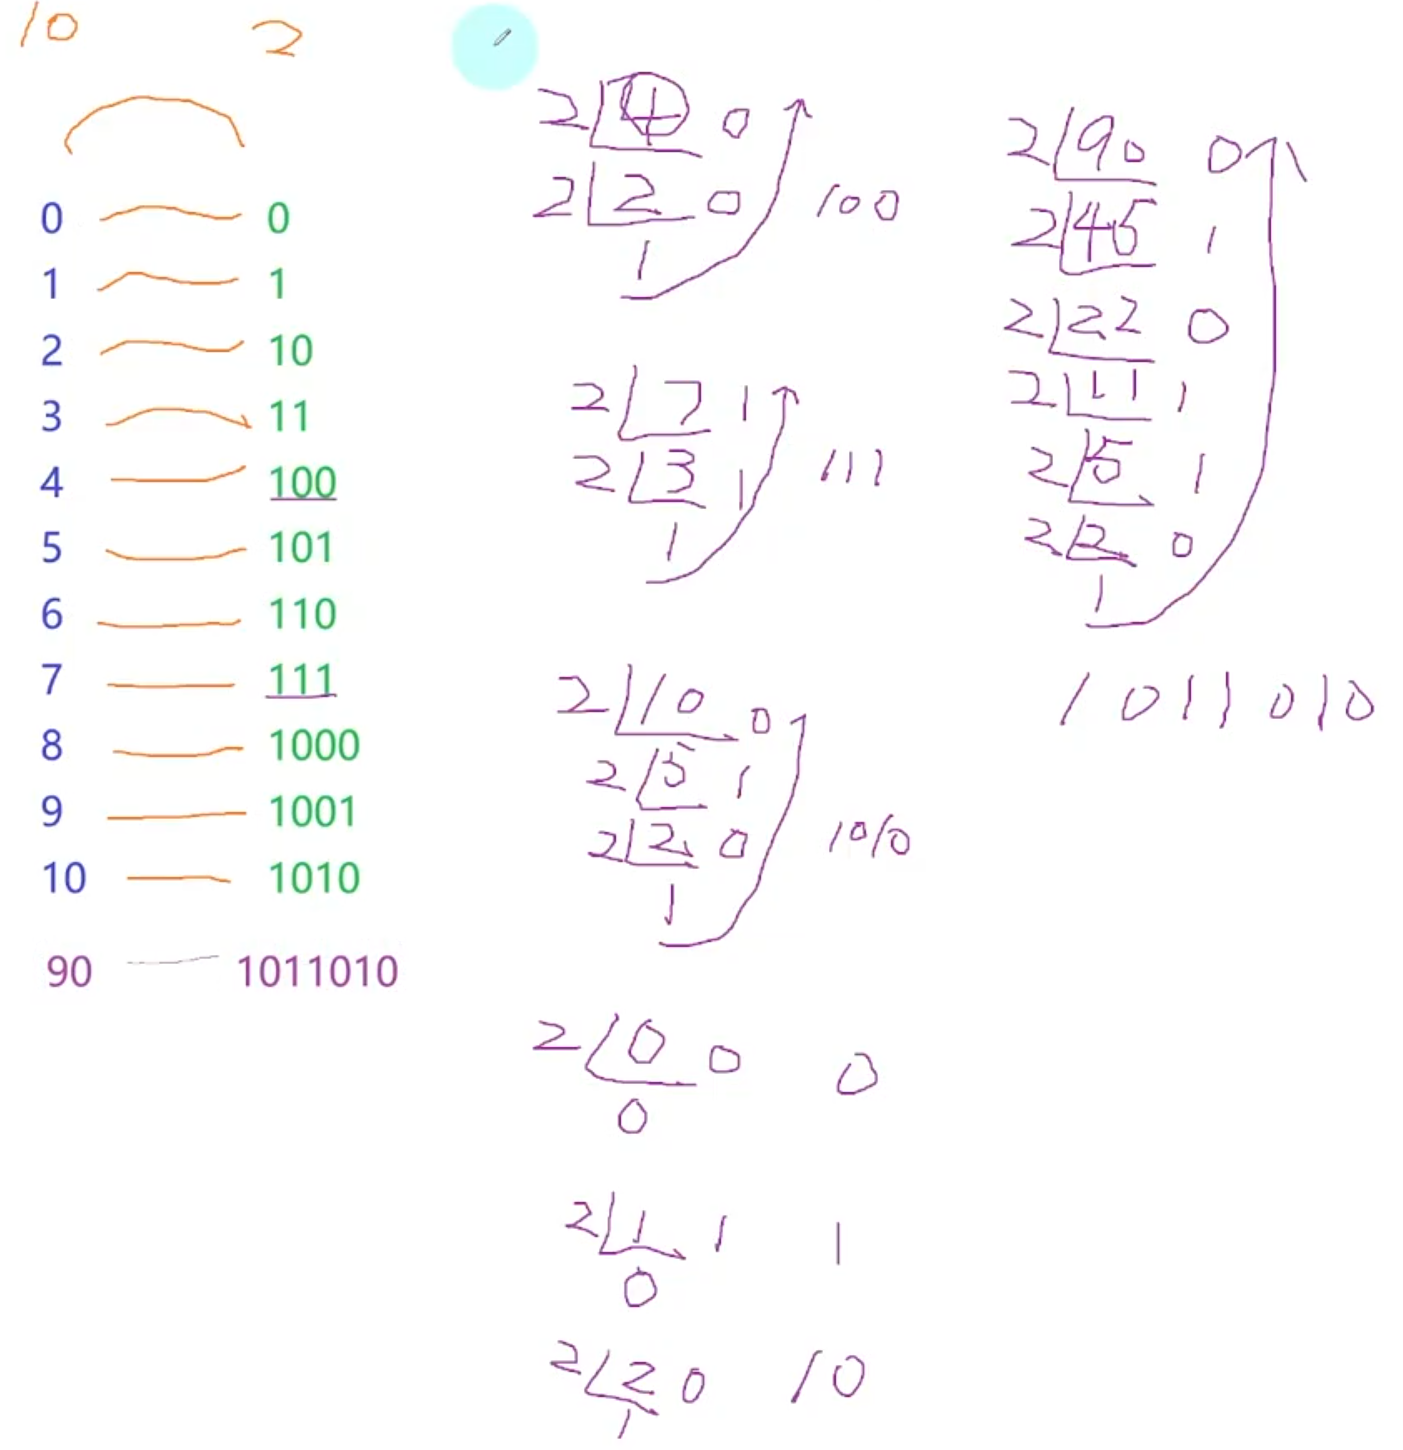 10 2
0 0
1 1
2 10
3 11
4 100
5 101
6 110
7 111
8 1000
9 1001
10 1010
90 1011010
2 4 0
2 2 0
1
100
2 7 1
2 3 1
1
111
2 10 0
2 5 1
2 2 0
1
1010
2 0 0
0
0
2 1 1
0
1
2 2 0
1
10
2 90 0
2 45 1
2 22 0
2 11 1
2 5 1
2 2 0
1
1011010